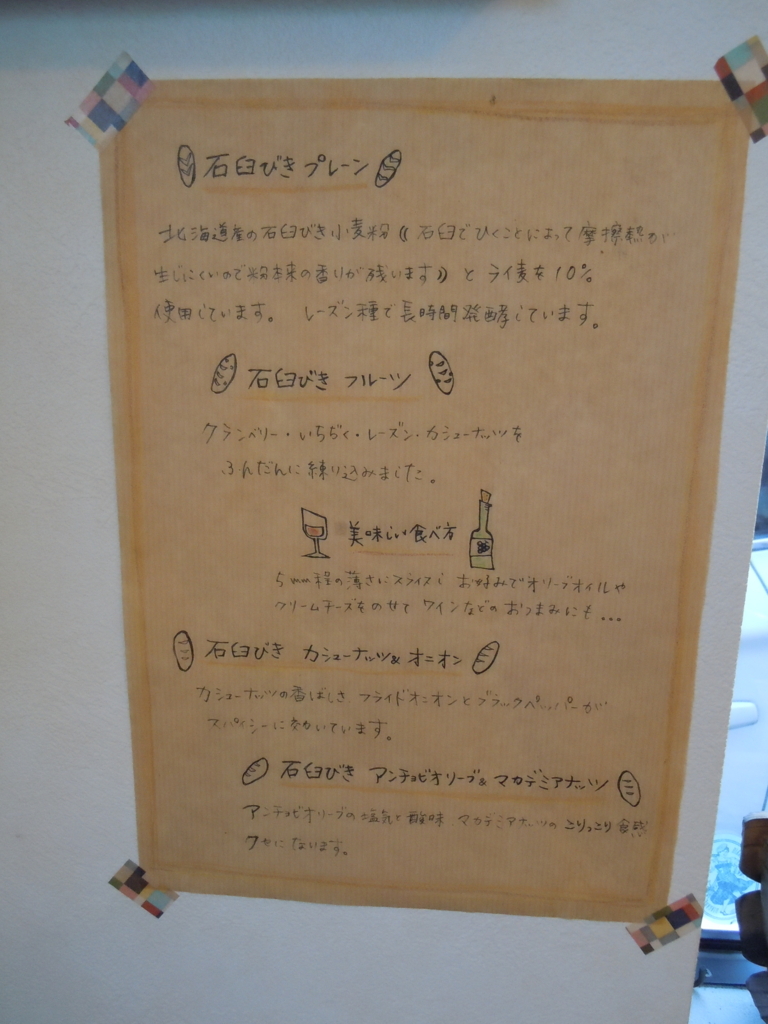 石臼びき プレーン
北海道産の石臼びき小麦粉《石臼でひくことによって摩擦熱が
生じにくいので粉本来の香りが残います》とライ麦を10%
使用しています。 レーズン種で長時間発酵しています。
石臼びき フルーツ
クランベリー・いちぢく・レーズン・カシューナッツを
ふんだんに練り込みました。
美味しい食べ方
5mm程の薄さにスライスし お好みでオリーブオイルや
クリームチーズをのせて ワインなどのおつまみにも...
石臼びき カシューナッツ&オニオン
カシューナッツの香ばしさ フライドオニオンとブラックペッパーが
スパイシーに効いています。
石臼びき アンチョビオリーブ&マカデミアナッツ
アンチョビオリーブの塩気と酸味、マカデミアナッツのこりっこり食感
クセになります。